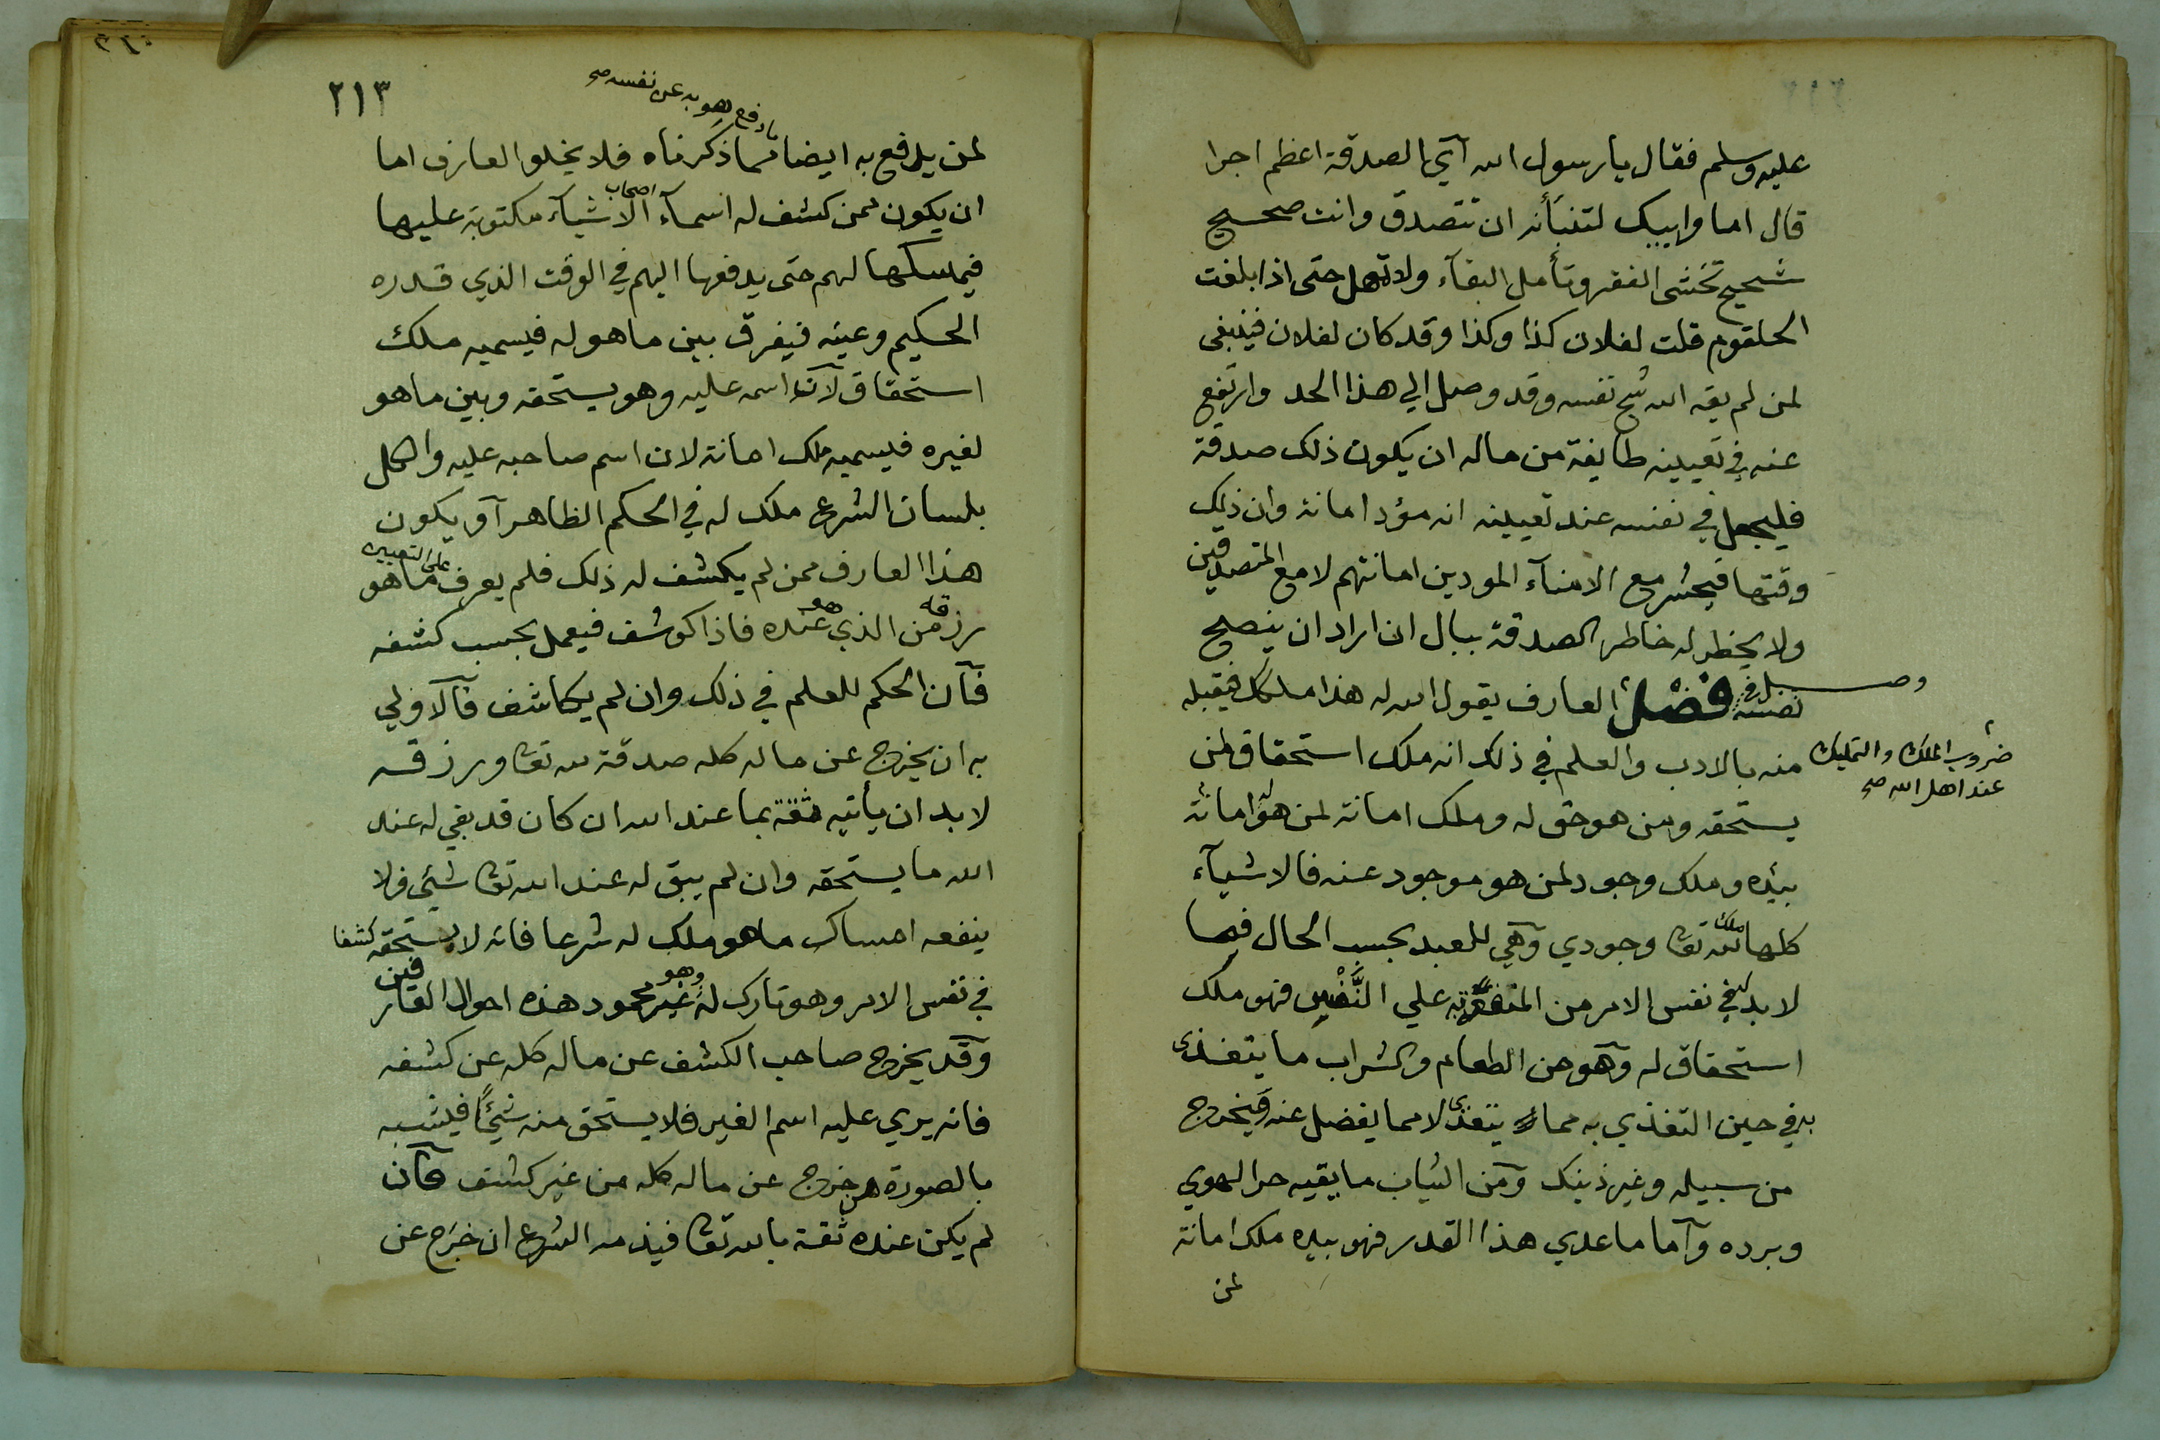 عليه وسلم فقال يا رسول الله آي الصدقة اعظم اجرا
قال اما وابيك لتنبأنه ان تتصدق وانت صحيح
شحيح تخشى الفقر وتأمل البقآء ولا تمهل حتى اذا بلغت
الحلقوم قلت لفلان كذا وكذا وقد كان لفلان فينبغى
لمن لم يقه الله شح نفسه وقد وصل الي هذا الحد وارتفع
عنه في تعيينه طايفة من ماله ان يكون ذلك صدقة
فليجعل في نفسه عند تعيينه انه مؤد امانة وان ذلك
وقتها فيحشر مع الامنآء المودين امانتهم لا مع المتصدقين
ولا يخطر له خاطر الصدقة ببال ان اراد ان ينصح
نفسه وصل في فضل العارف يقول الله له هذا ملكك فيقبله
ضروب الملك والتمليك
عند اهل الله صح
منه بالادب والعلم في ذلك انه ملك استحقاق لمن
يستحقه ومن هو حق له وملك امانة لمن هو له امانة
بيده وملك وجود لمن هو موجود عنه فالاشيآء
كلها ملك لله تعا وجودي وهي للعبد بحسب الحال فما
لا بد له في نفس الامر من المنفعة به علي التَّعْيين فهو ملك
استحقاق له وهو من الطعام والشراب ما يتغذى
به في حين التغذي به مما يتغذى لا مما يفضل عنه فيخرج
من سبيله وغير ذينك ومن الثياب ما يقيه حر الهوي
وبرده وآما ما عدي هذا القدر فهو بيده ملك امانة
لمن
٢١٣
ما دفع هو به عن نفسه صح
لمن يدفع به ايضا مما ذكرناه فلا يخلو العارف اما
ان يكون ممن كشف له اسمآء اصحاب الاشيآء مكتوبة عليها
فيمسكها لهم حتى يدفعها اليهم في الوقت الذي قدره
الحكيم وعينه فيفرق بين ما هو له فيسميه ملك
استحقاق لآن اسمه عليه وهو يستحقه وبين ما هو
لغيره فيسميه ملك امانة لان اسم صاحبه عليه والكل
بلسان الشرع ملك له في الحكم الظاهر آو يكون
هذا العارف ممن لم يكشف له ذلك فلم يعرف على التعيين ما هو
رزقه من الذي هو عنده فاذا كوشف فيعمل بحسب كشفه
فآن الحكم للعلم في ذلك وان لم يكاشف فآلآولي
به ان يخرج عن ماله كله صدقة لله تعا ورزقه
لا بد ان يأتيه ثقة بما عند الله ان كان قد بقي له عند
الله ما يستحقه وان لم يبق له عند الله تعا شيئ فلا
ينفعه امساك ما هو ملك له شرعا فانه لا يستحقه كشفا
في نفس الامر وهو تارك له وهو غير محمود هذه احوال العارفين
وقد يخرج صاحب الكشف عن ماله كله عن كشفه
فانه يري عليه اسم الغير فلا يستحق منه شيئًا فيشبه
بالصورة من خرج عن ماله كله من غير كشف فآن
لم يكن عنده ثقة بالله تعا فيذمه الشرع ان خرج عن